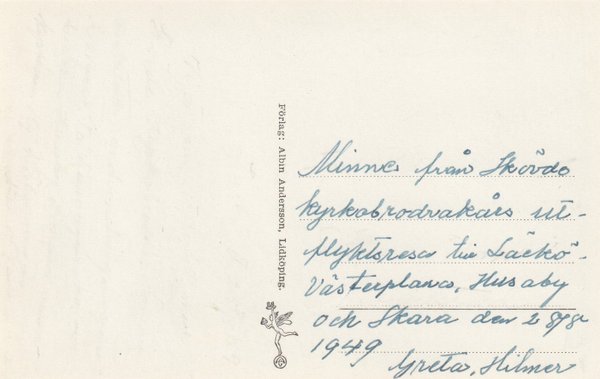 Förlag: Albin Andersson, Lidköping.
Minne från Skövde
kyrkobrodrakårs ut-
flyktsresa till Läckö-
Västerplana, Husaby
och Skara den 28/8
1949
Greta, Hilmer